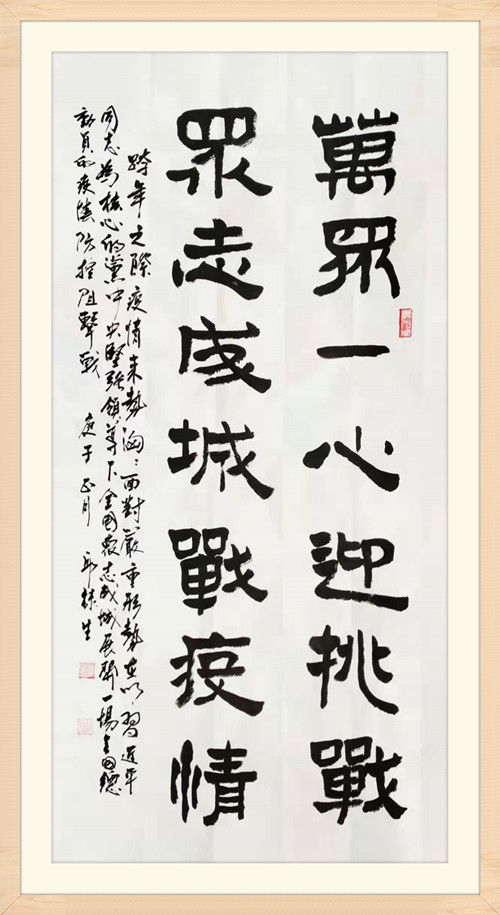 萬眾一心迎挑戰
眾志成城戰疫情
跨年之際疫情来勢洶〻面對嚴重形勢在以習近平
同志為核心的黨中央堅强領導下全國衆志成城展開一場全國總
動員的疫情防控阻擊戰 庚子正月